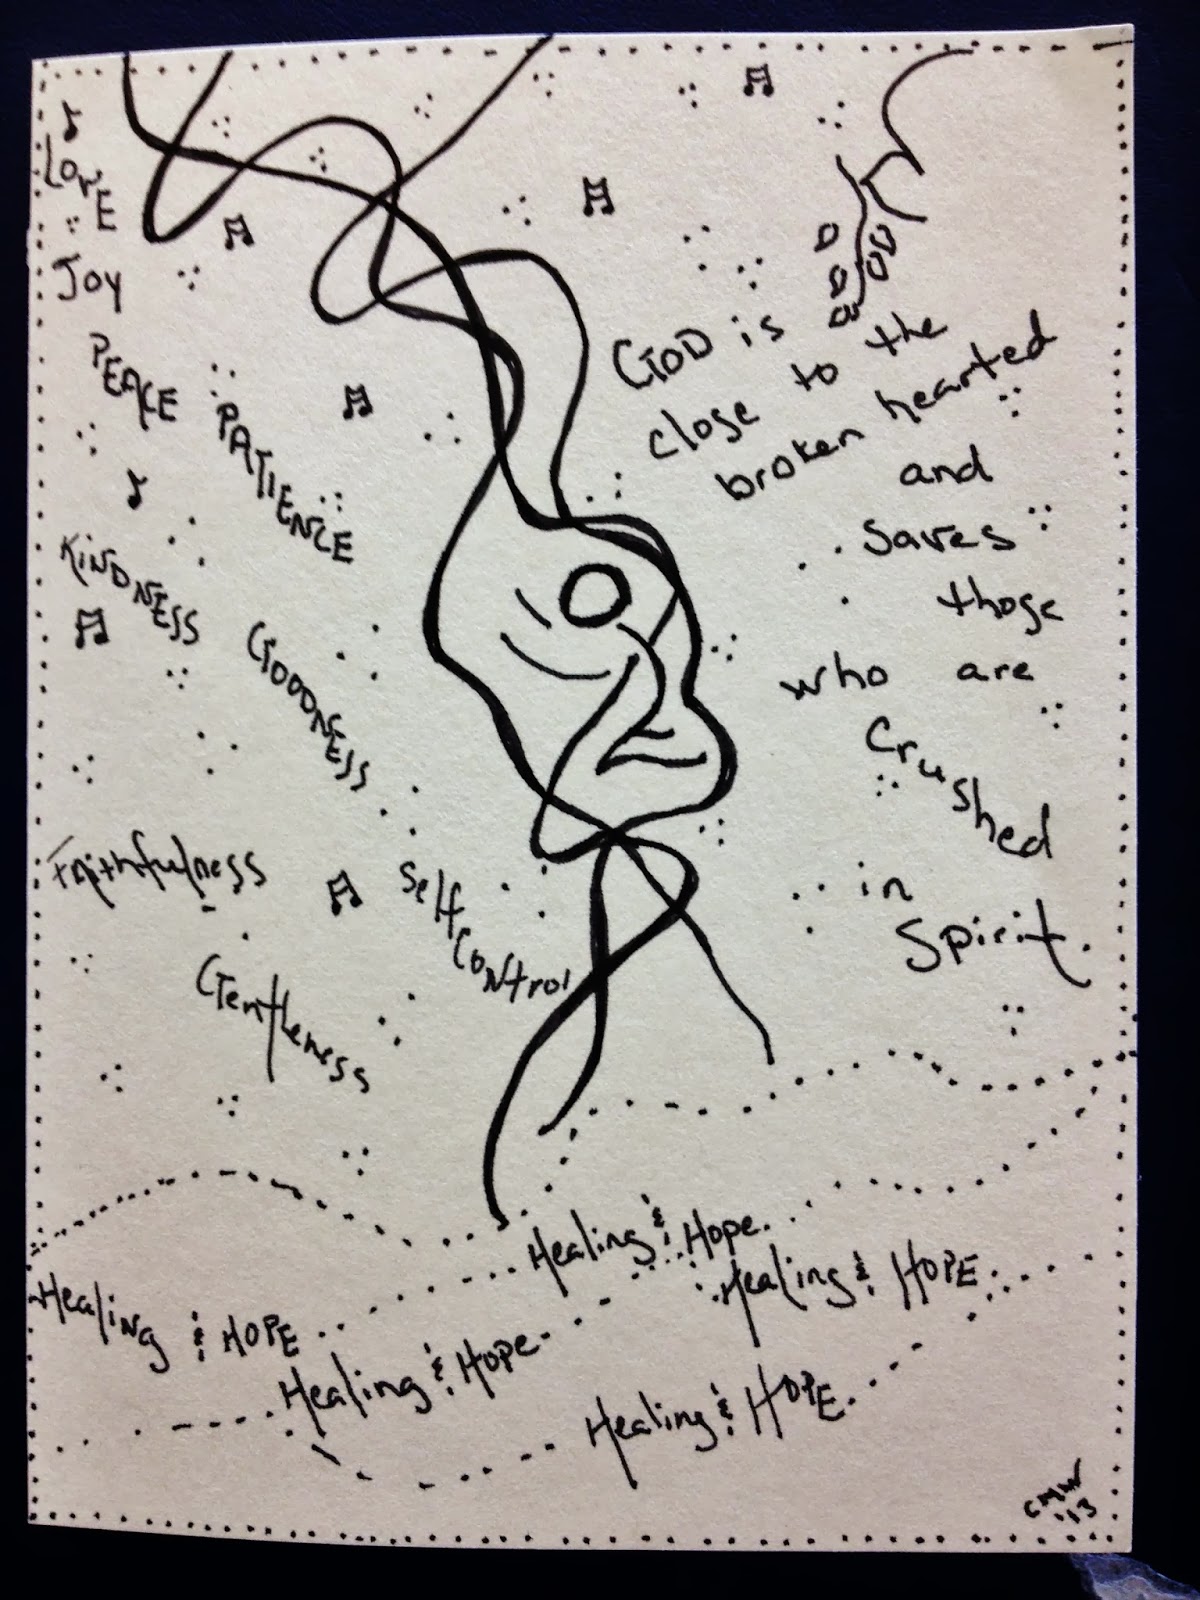 LOVE
JOY
PEACE
PATIENCE
KINDNESS
GOODNESS
Faithfulness
Self
Control
Gentleness
GOD is
close to the
broken hearted
and
saves
those
who are
crushed
in
Spirit.
Healing & Hope.
Healing & HOPE.
Healing & HOPE
Healing & Hope
Healing & HOPE.
CMW
'13